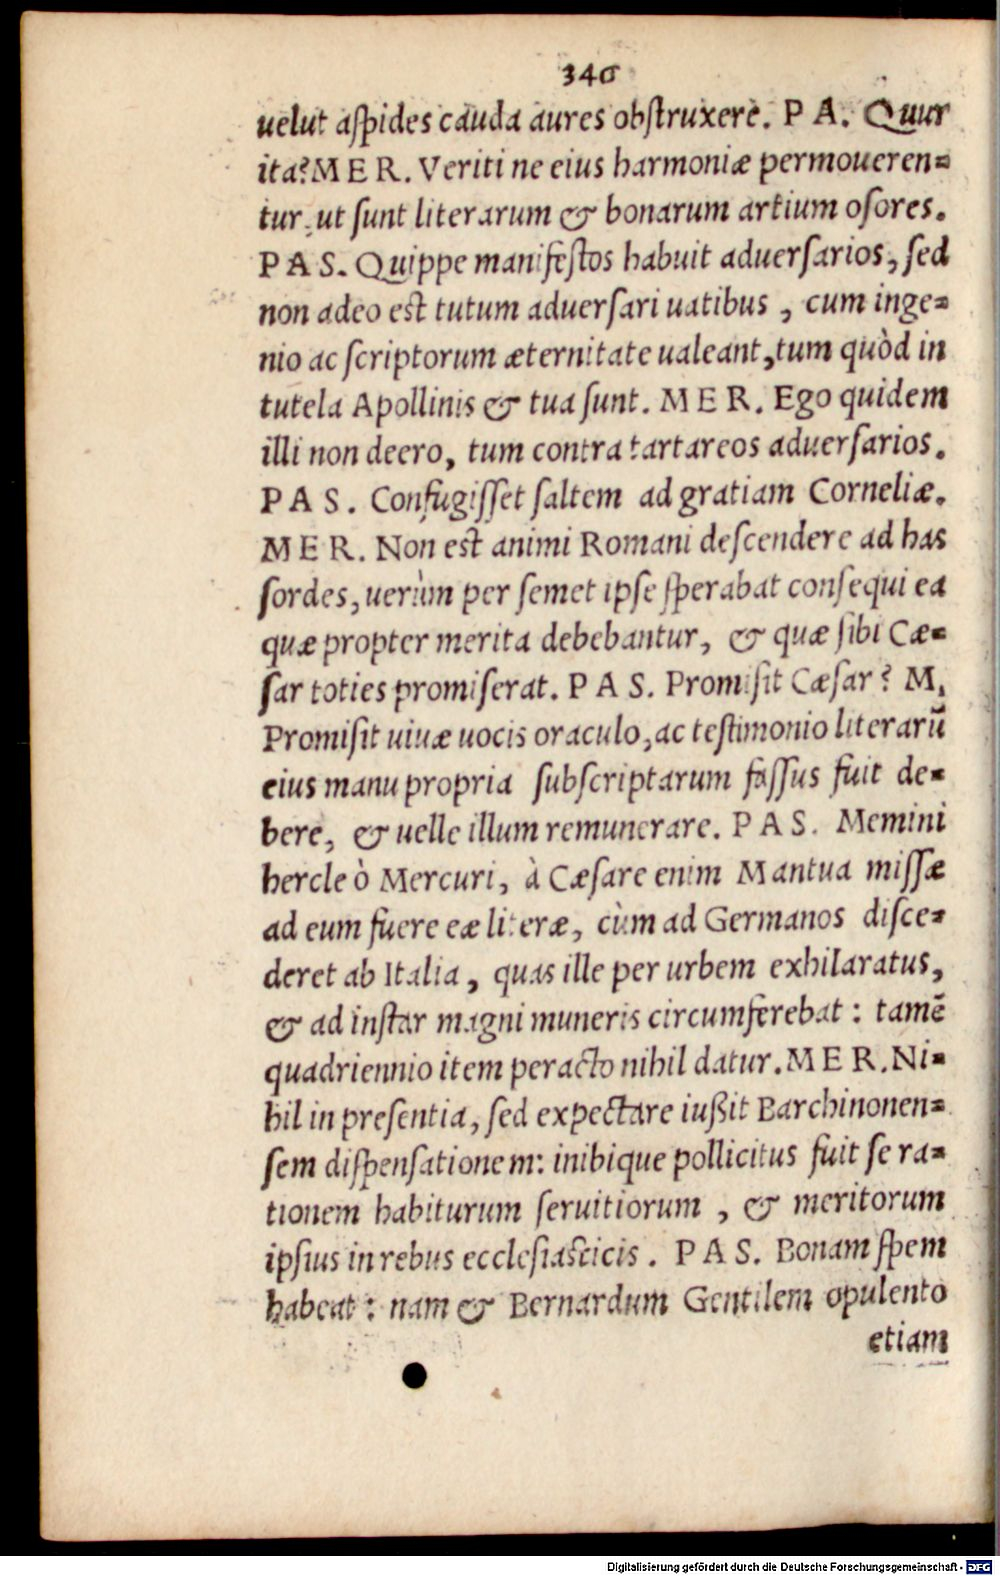 340
uelut aſpides cauda aures obſtruxere. P A. Quur
ita? M E R. Veriti ne eius harmoniæ permoueren=
tur, ut ſunt literarum & bonarum artium oſores.
P A S. Quippe manifeſtos habuit aduerſarios, ſed
non adeo eſt tutum aduerſari uatibus, cum inge=
nio ac ſcriptorum æternitate ualeant, tum quòd in
tutela Apollinis & tua ſunt. M E R. Ego quidem
illi non deero, tum contra tartareos aduerſarios.
P A S. Confugiſſet ſaltem ad gratiam Corneliæ.
M E R. Non eſt animi Romani deſcendere ad has
ſordes, uerùm per ſemet ipſe ſperabat conſequi ea
quæ propter merita debebantur, & quæ ſibi Cæ=
ſar toties promiſerat. P A S. Promiſit Cæſar? M.
Promiſit uiuæ uocis oraculo, ac teſtimonio literarū
eius manu propria ſubſcriptarum faſſus fuit de=
bere, & uelle illum remunerare. P A S. Memini
hercle ò Mercuri, à Cæſare enim Mantua miſſæ
ad eum fuere eæ literæ, cùm ad Germanos diſce=
deret ab Italia, quas ille per urbem exhilaratus,
& ad inſtar magni muneris circumferebat: tamē
quadriennio item peracto nihil datur. M E R. Ni=
hil in preſentia, ſed expectare iußit Barchinonen=
ſem diſpenſationem: inibique pollicitus fuit ſe ra=
tionem habiturum ſeruitiorum, & meritorum
ipſius in rebus eccleſiaſticis. P A S. Bonam ſpem
habeat: nam & Bernardum Gentilem opulento
etiam
Digitalisierung gefördert durch die Deutsche Forschungsgemeinschaft - DFG